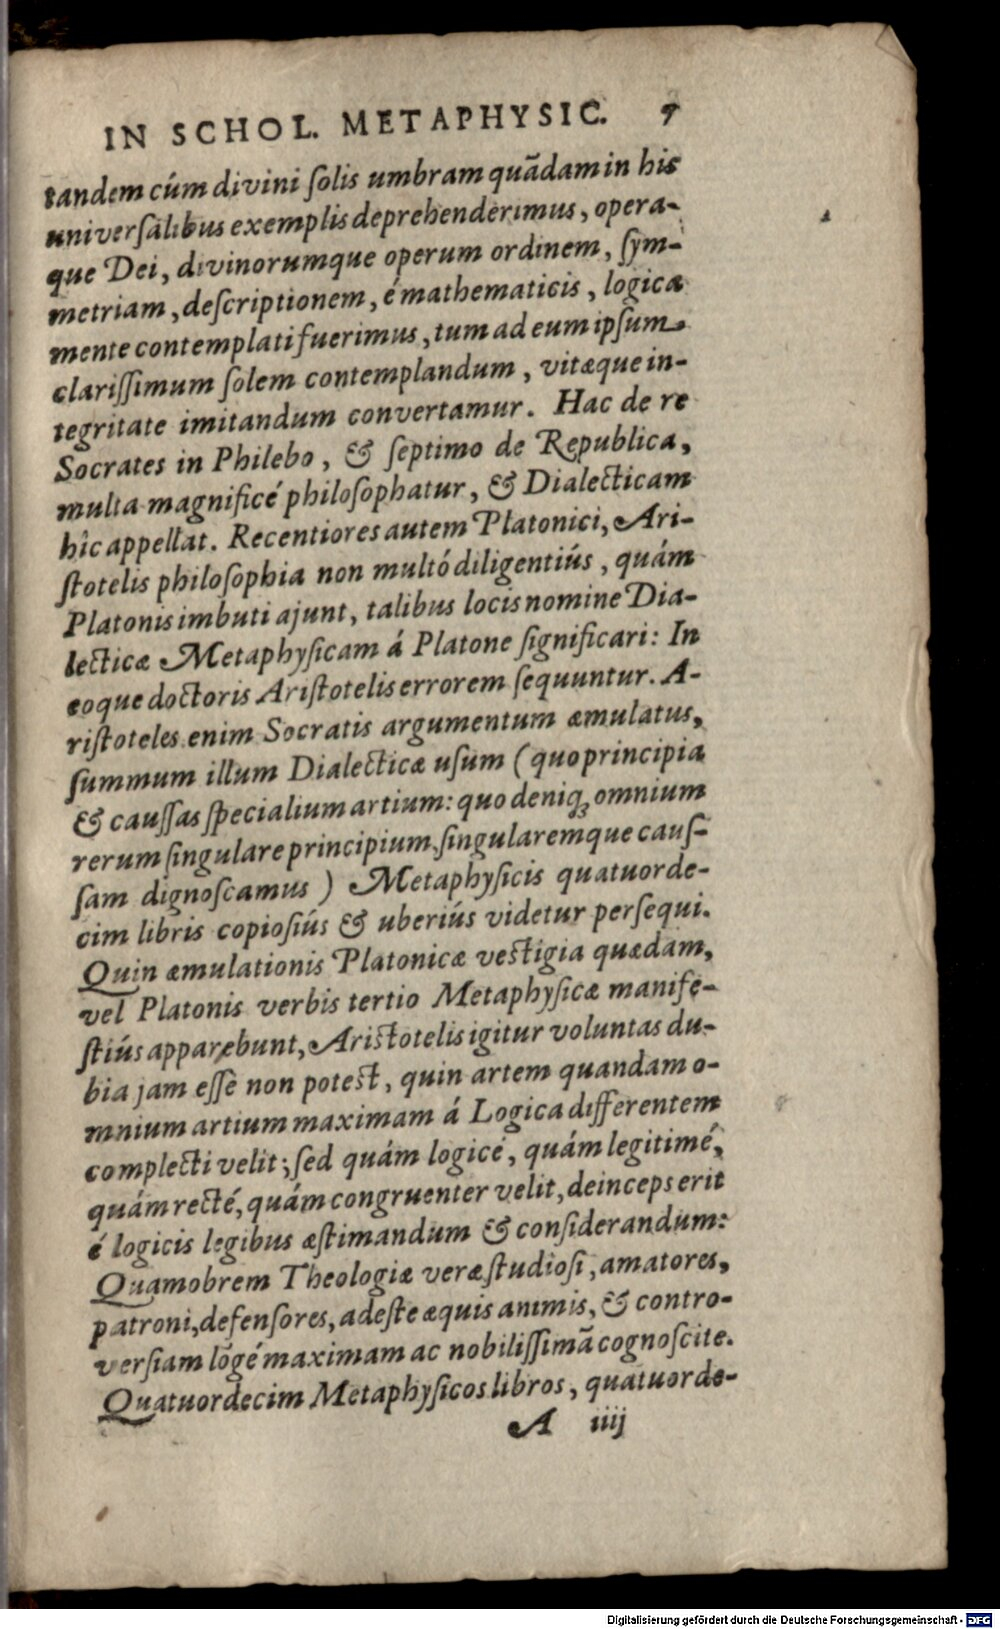 IN SCHOL. METAPHYSIC. 7
tandem cúm divini ſolis umbram quãdam in his
univerſalibus exemplis deprehenderimus, opera-
que Dei, divinorumque operum ordinem, ſym-
metriam, deſcriptionem, é mathematicis, logica
mente contemplati fuerimus, tum ad eum ipſum
clariſſimum ſolem contemplandum, vitæque in-
tegritate imitandum convertamur. Hac de re
Socrates in Philebo, & ſeptimo de Republica,
multa magnificé philoſophatur, & Dialecticam
hîc appellat. Recentiores autem Platonici, Ari-
ſtotelis philoſophia non multó diligentiús, quám
Platonis imbuti ajunt, talibus locis nomine Dia-
lecticæ Metaphyſicam á Platone ſignificari: In
eoque doctoris Ariſtotelis errorem ſequuntur. A-
riſtoteles enim Socratis argumentum æmulatus,
ſummum illum Dialecticæ uſum (quo principia
& cauſſas ſpecialium artium: quo deniqꝫ omnium
rerum ſingulare principium, ſingularemque cauſ-
ſam dignoſcamus) Metaphyſicis quatuorde-
cim libris copioſiús & uberiús videtur perſequi.
Quin æmulationis Platonicæ veſtigia quædam,
vel Platonis verbis tertio Metaphyſicæ manife-
ſtiús apparebunt, Ariſtotelis igitur voluntas du-
bia jam eſſe non poteſt, quin artem quandam o-
mnium artium maximam á Logica differentem
complecti velit; ſed quám logicé, quám legitimé,
quám recté, quám congruenter velit, deinceps erit
é logicis legibus æſtimandum & conſiderandum:
Quamobrem Theologiæ veræ ſtudioſi, amatores,
patroni, defenſores, adeſte æquis animis, & contro-
verſiam lõgé maximam ac nobiliſſimã cognoſcite.
Quatuordecim Metaphyſicos libros, quatuorde-
A iiij
Digitalisierung gefördert durch die Deutsche Forschungsgemeinschaft - DFG